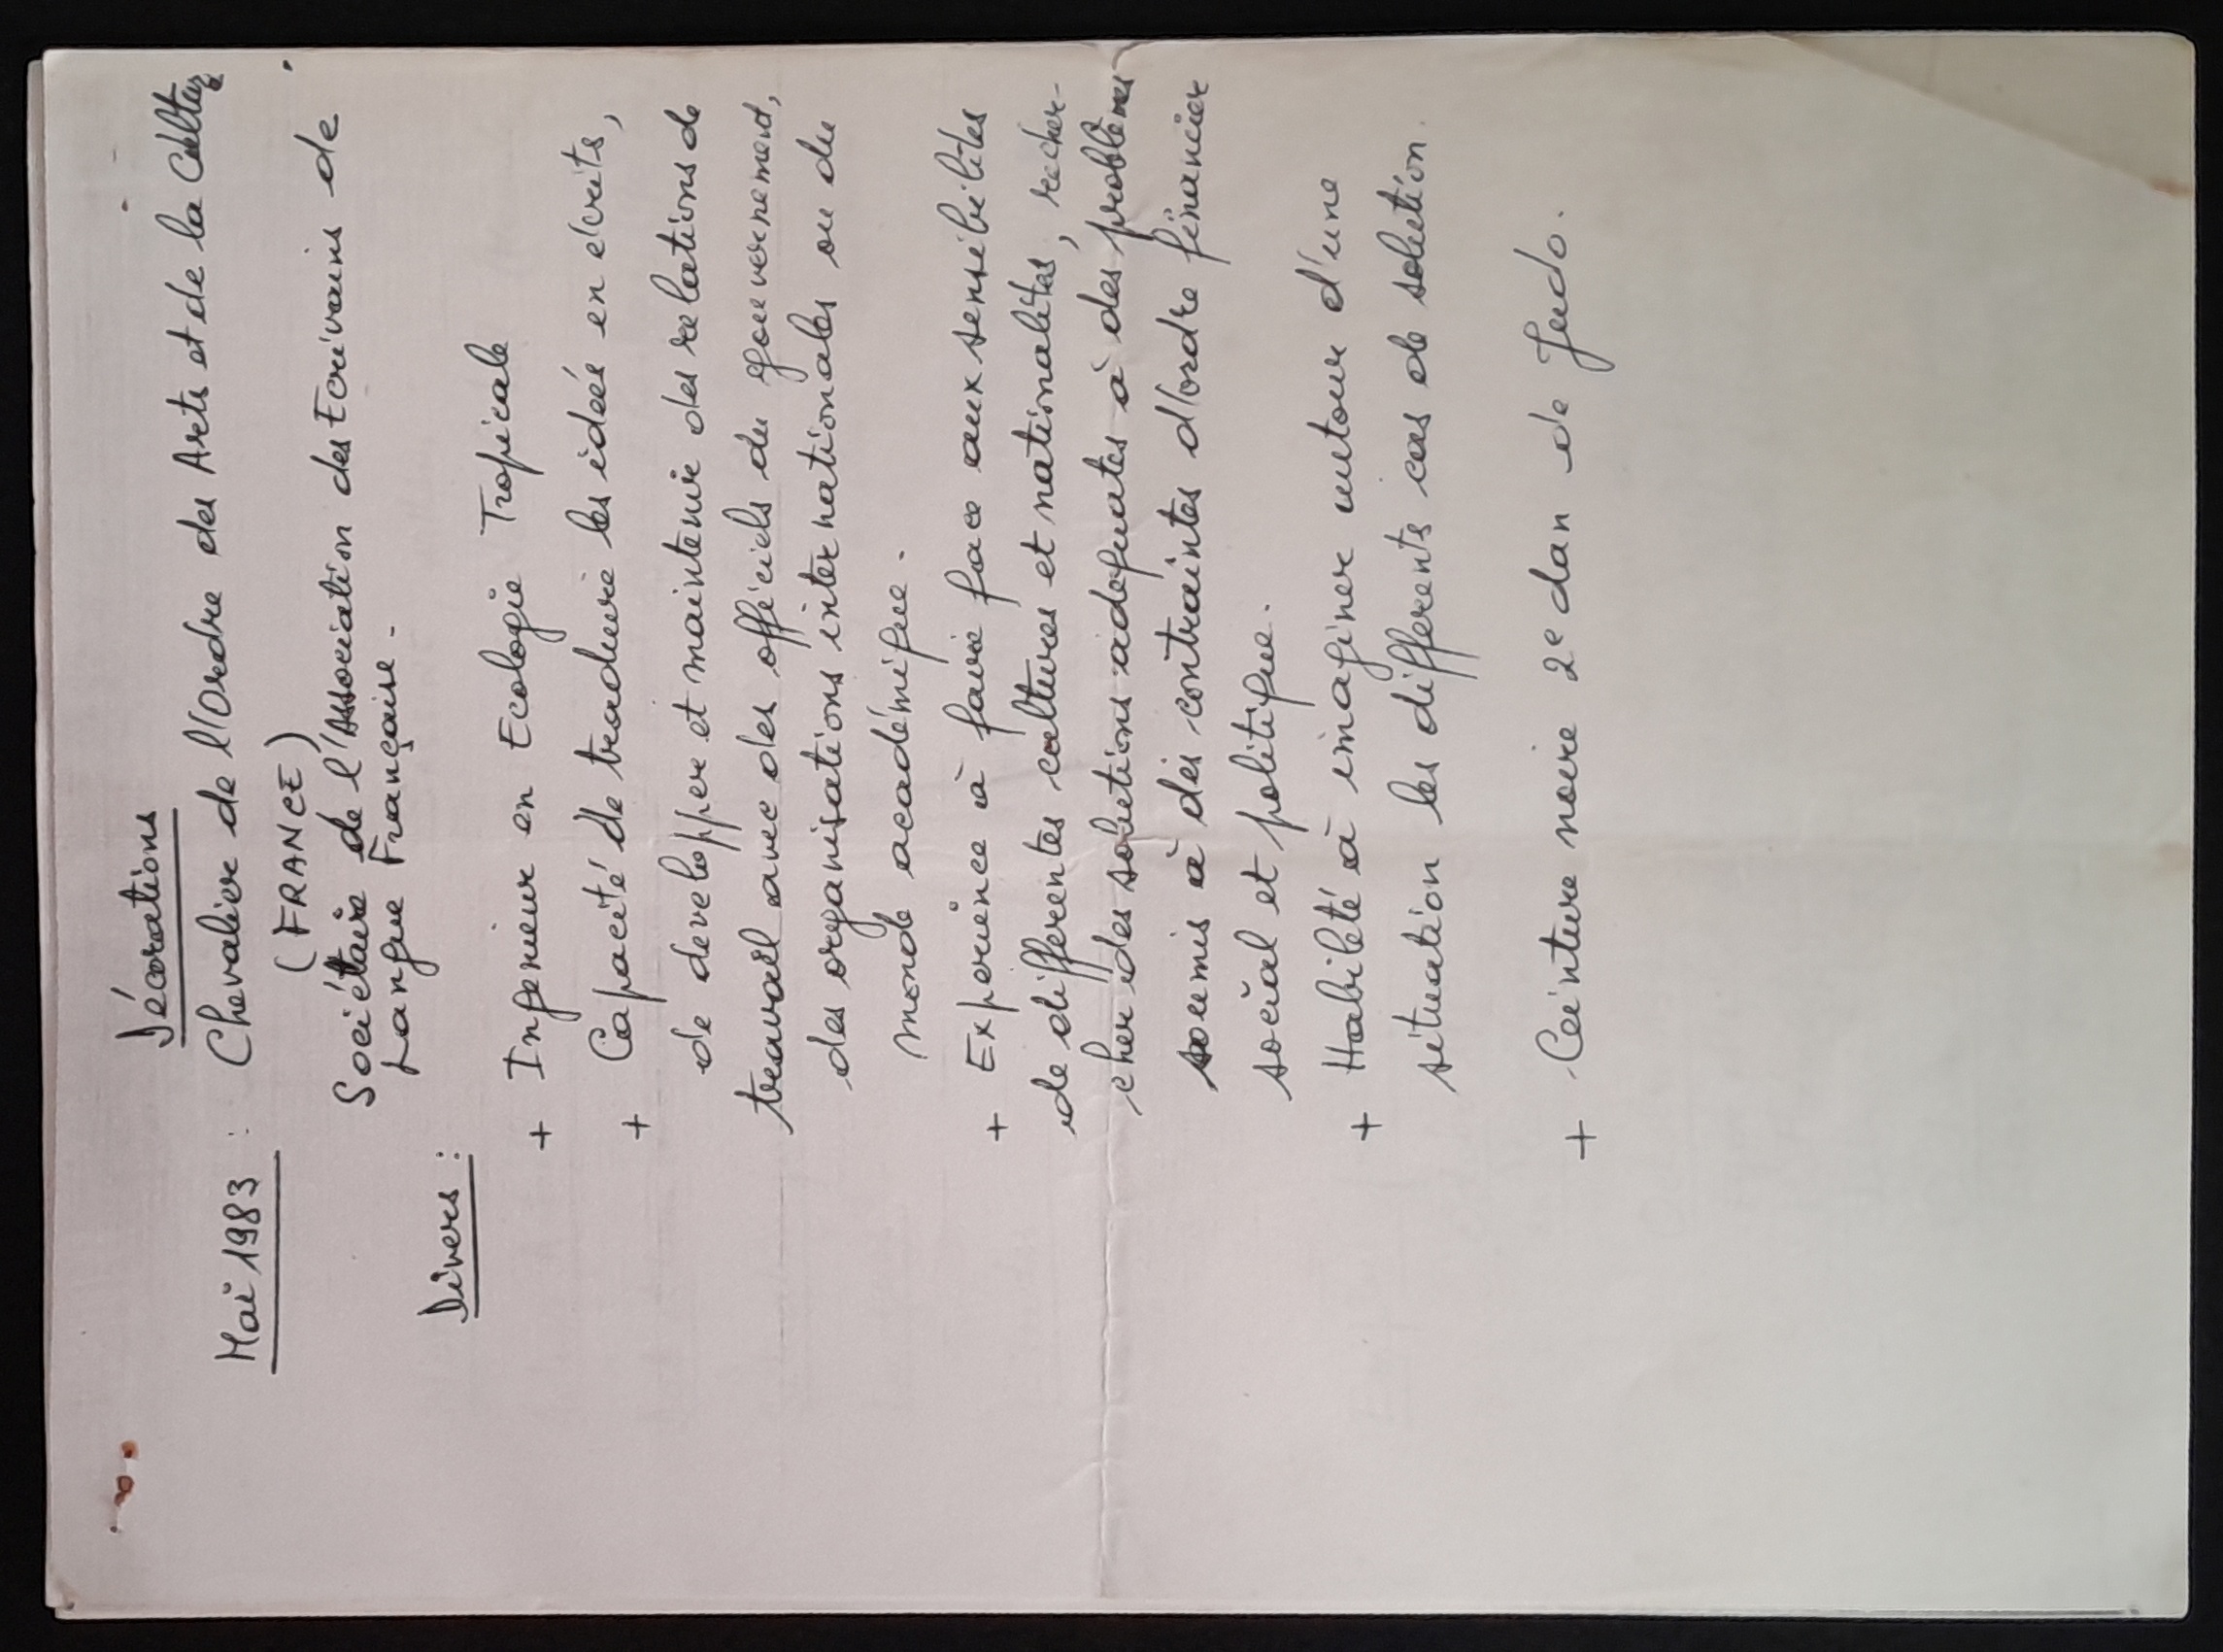 Décorations
Mai 1983 : Chevalier de l'Ordre des Arts et de la Culture
(FRANCE)
Sociétaire de l'Association des Ecrivains de
Langue Française.
Divers :
+ Ingenieur en Ecologie Tropicale
+ Capacité de traduire les idées en écrits,
de developper et maintenir des relations de
travail avec des officiels du gouvernement,
des organisations internationales ou du
monde académique.
+ Experience à faire face aux sensibilités
de differentes cultures et nationalités, recher-
cher des solutions adequates à des problèmes
soumis à des contraintes d'ordre financier
social et politique.
+ Habileté à imaginer autour d'une
situation les differents cas de solution.
+ Ceinture noire 2e dan de Judo.